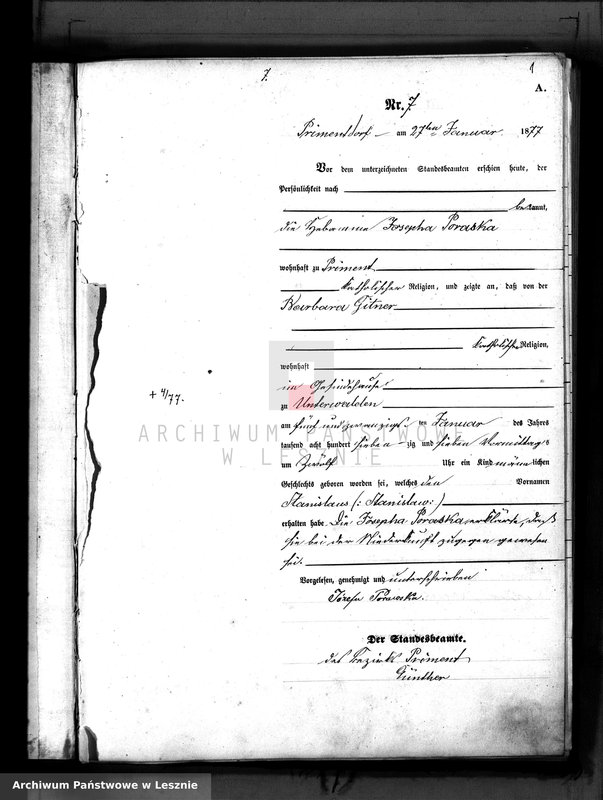 7.
9
A.
Nr. 7
Primentdorf am 27ten Januar 1877
Vor dem unterzeichneten Standesbeamten erschien heute, der
Persönlichkeit nach
bekannt,
die Hebamme Josepha Poraska
wohnhaft zu Priment
katholischer Religion, und zeigte an, daß von der
Barbara Gitner
katholischer Religion,
wohnhaft
im Gesindehause
zu Unterwalden
am fünf und zwanzigsten Januar des Jahres
tausend acht hundert sieben-zig und sieben Vormittags
um zwölf Uhr ein Kind männlichen
Geschlechts geboren worden sei, welches den Vornamen
Stanislaus (: Stanislaw :)
erhalten habe. Die Josepha Poraska erklärte, daß
sie bei der Niederkunft zugegen gewesen
sei.
Vorgelesen, genehmigt und unterschrieben
Józefa Poraska.
Der Standesbeamte.
des Bezirks Priment
Günther
+ 4/77.
ARCHIWUM PAŃSTWOWE
W LESZNIE
Archiwum Państwowe w Lesznie